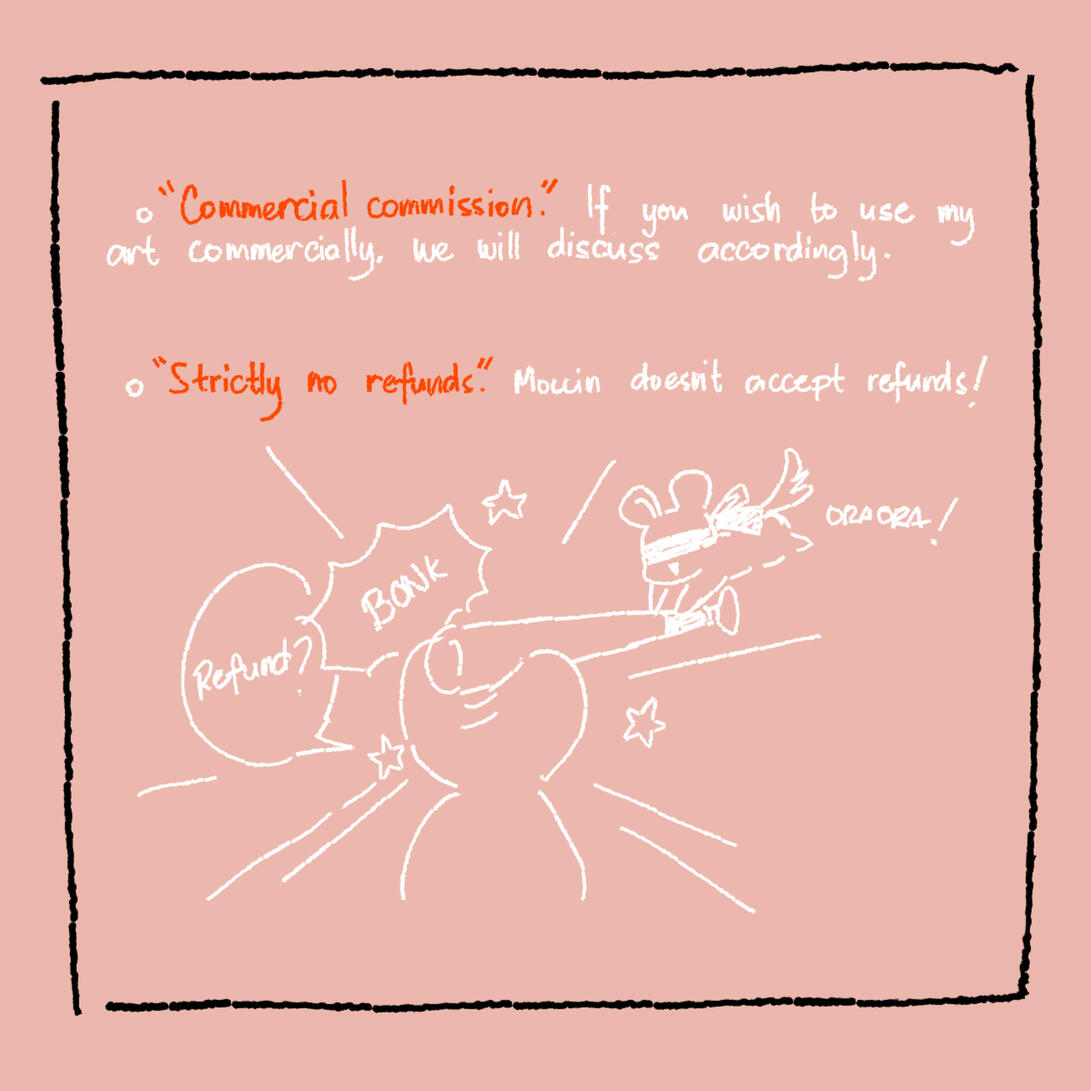 "Commercial commission." If you wish to use my
art commercially, we will discuss accordingly.
"Strictly no refunds." Mouin doesn't accept refunds!
ORA ORA!
BONK
Refund?